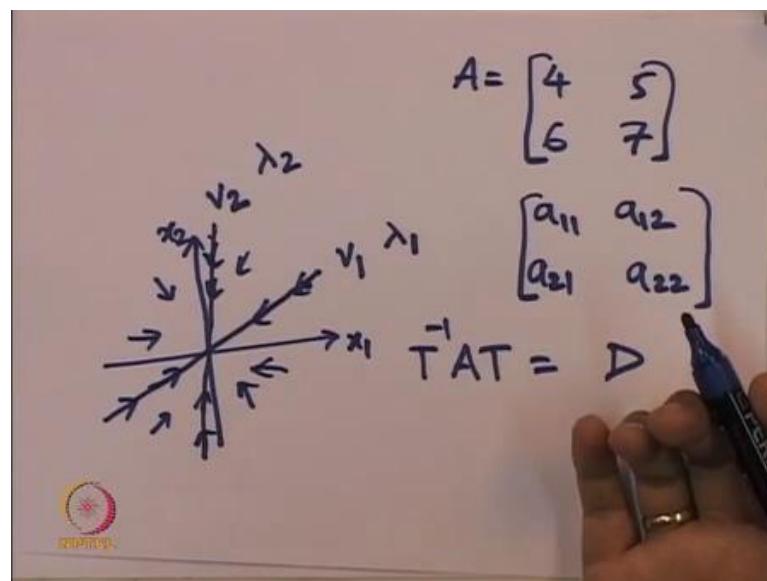 A = [4 5
6 7]
λ2
v2
x2
v1 λ1
[a11 a12
a21 a22]
x1
T⁻¹AT = D
NPTEL